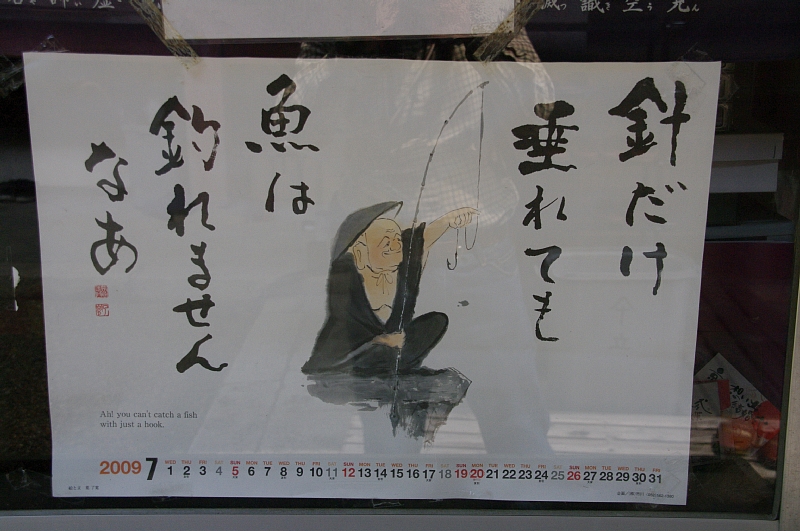 針だけ
垂れても
魚は
釣れません
なあ
Ah! you can't catch a fish
with just a hook.
2009 7
WED THU FRI SAT SUN MON TUE WED THU FRI SAT SUN MON TUE WED THU FRI SAT SUN MON TUE WED THU FRI SAT SUN MON TUE WED THU FRI
1 2 3 4 5 6 7 8 9 10 11 12 13 14 15 16 17 18 19 20 21 22 23 24 25 26 27 28 29 30 31